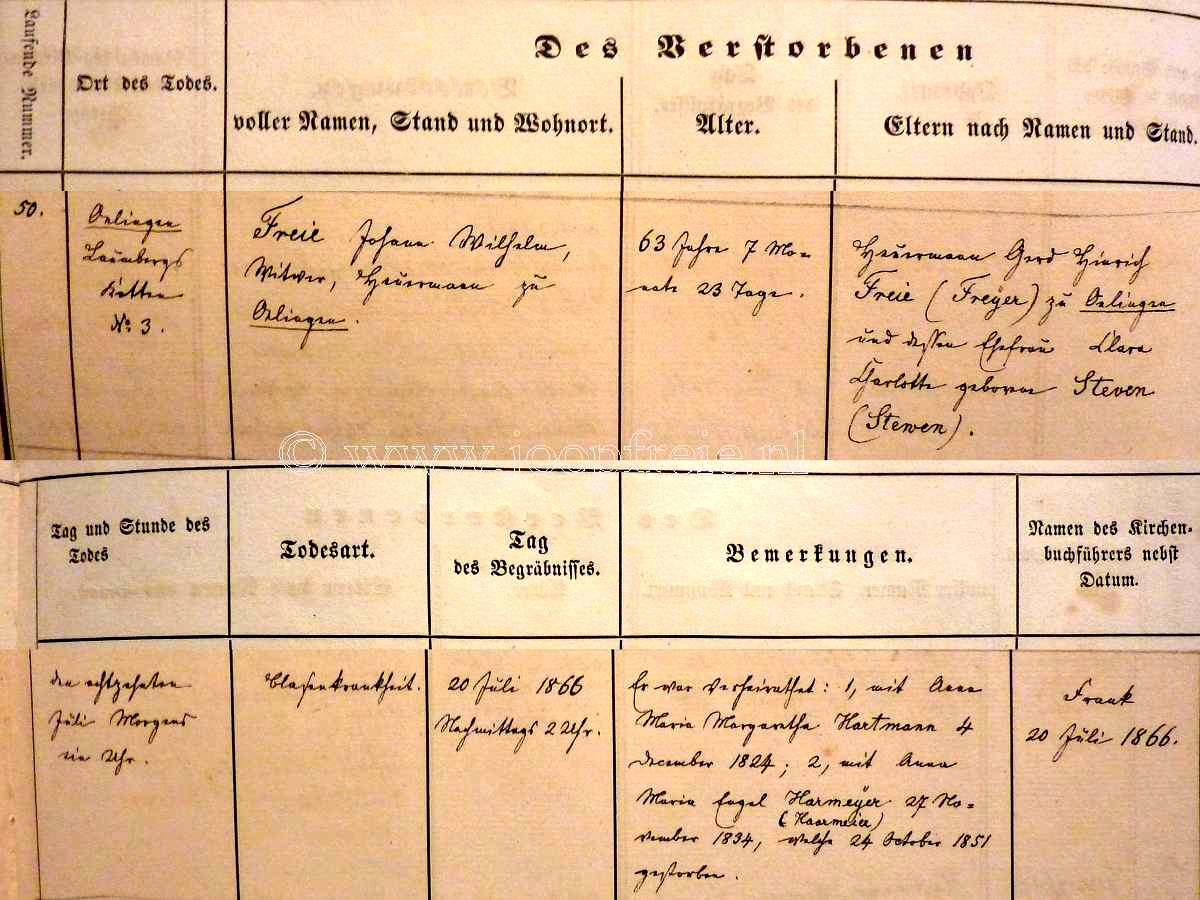 Laufende Nummer.
Ort des Todes.
Des Verstorbenen
voller Namen, Stand und Wohnort.
Alter.
Eltern nach Namen und Stand.
50.
Oelingen
Laumbergs
Kotten
№ 3.
Freie Johann Wilhelm,
Witwer, Heuermann zu
Oelingen.
63 Jahre 7 Mo-
nate 23 Tage.
Heuermann Gerd Hinrich
Freie (Freyer) zu Oelingen
und dessen Ehefrau Clara
Charlotte geborene Steven
(Stewen).
© www.joopfreie.nl
Tag und Stunde des
Todes
Todesart.
Tag
des Begräbnisses.
Bemerkungen.
Namen des Kirchen-
buchführers nebst
Datum.
den achtzehnten
Juli Morgens
ein Uhr.
Blasenkrankheit.
20 Juli 1866
Nachmittags 2 Uhr.
Er war verheirathet: 1, mit Anna
Maria Margaretha Hartmann 4
December 1824; 2, mit Anna
Maria Engel Harmeyer 27 No-
(Haarmeier)
vember 1834, welche 24 October 1851
gestorben.
Frank
20 Juli 1866.